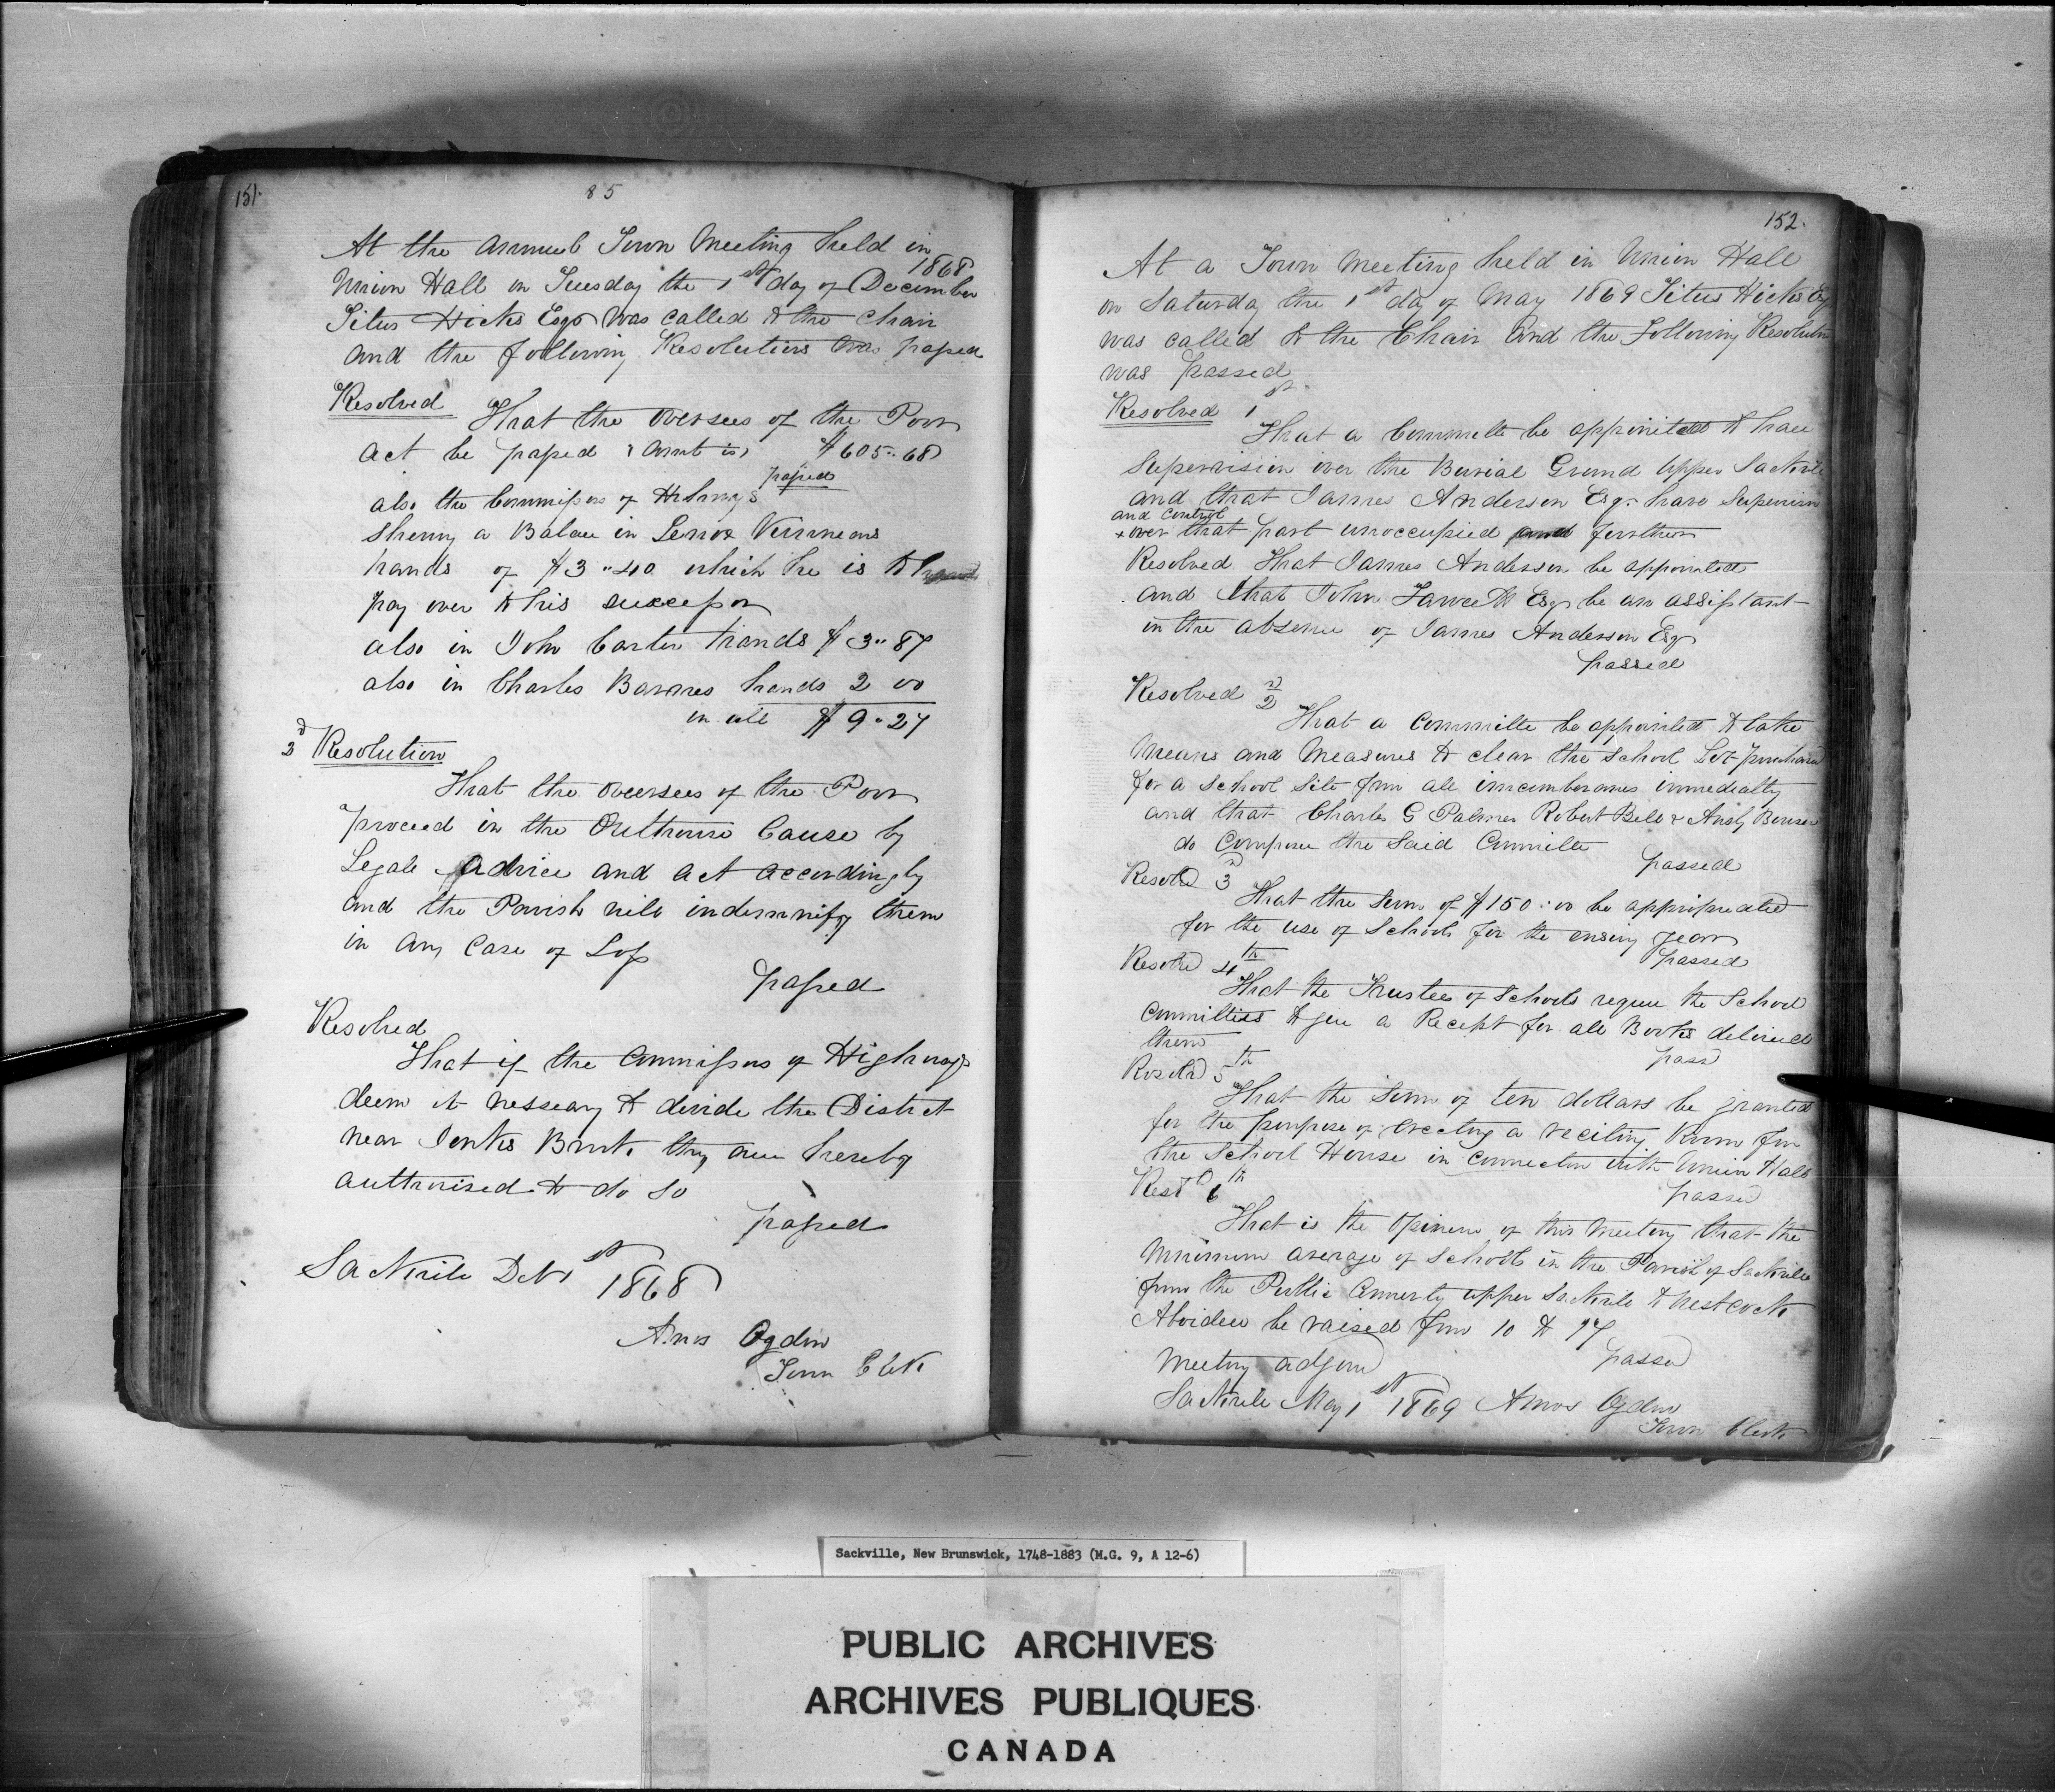 151.
85
At the annual Town Meeting held in
Union Hall on Tuesday the 1st day of December 1868
Titus Hicks Esqr was called to the Chair
and the following Resolutions was passed
Resolved
That the oversees of the Poor
act be passed amt is $605.. 68
passed
also the Commissers of
a Balance in Vinneans
hands of $3 "40 which he is to
pay over to his successor
also in John Carter hands $3.. 87
also in Charles Barnes hands 2 00
in all $9 " 27
2d Resolution
That the oversees of the Poor
proceed in the Outhouse Cause by
Legale advice and act accordingly
and the Parish will indemnify them
in any Case of Loss
passed
Resolved
That if the Commissers of Highways
deem it nessary to devide the District
near they are hereby
authorised to do so
passed
Sackville Dec 1st 1868
Amos Ogden
Town Clk
152.
At a Town Meeting held in Union Hall
on Saturday the 1st day of May 1869 Titus Hicks Esq
was called to the Chair and the Following Resolution
was passed
Resolved 1st
That a Committe be appointed to have
Supervision over the Burial Ground Upper Sackville
and that James Anderson Esqr have Supervision
and Control
+ over that part unoccupied further
Resolved That James Anderson be appointed
and that John Fawcett Esqr be an assistant
in the absence of James Anderson Esqr
passed
Resolved 2d
That a Committe be appointed to take
Means and Measures to clear the School Lot purchased
for a School Site from all incumberances immedialty
and that Charles G Palmer Robert Bell &
do Compose the Said Committe
passed
Resolvd 3d
That the Sum of $150.00 be appropriated
for the use of Schools for the ensuing year
passed
Resolvd 4th
That the Trustees of Schools require the School
Committies to give a Recept for all Books delivered
them
passd
Resolvd 5th
That the Sum of ten dollars be granted
for the purpose of erecting a reciting Room for
the School House in Connection with Union Hall
passed
Resd 6th
That is the Opinion of this Meeting that the
Minimum average of Schools in the Parish of Sackville
from the Public Upper Sackville to Westcock
be raised from 10 to 17
passed
Meeting adjourd
Sackville May 1st 1869 Amos Ogden
Town Clerk
Sackville, New Brunswick, 1748-1883 (M.G. 9, A 12-6)
PUBLIC ARCHIVES
ARCHIVES PUBLIQUES
CANADA